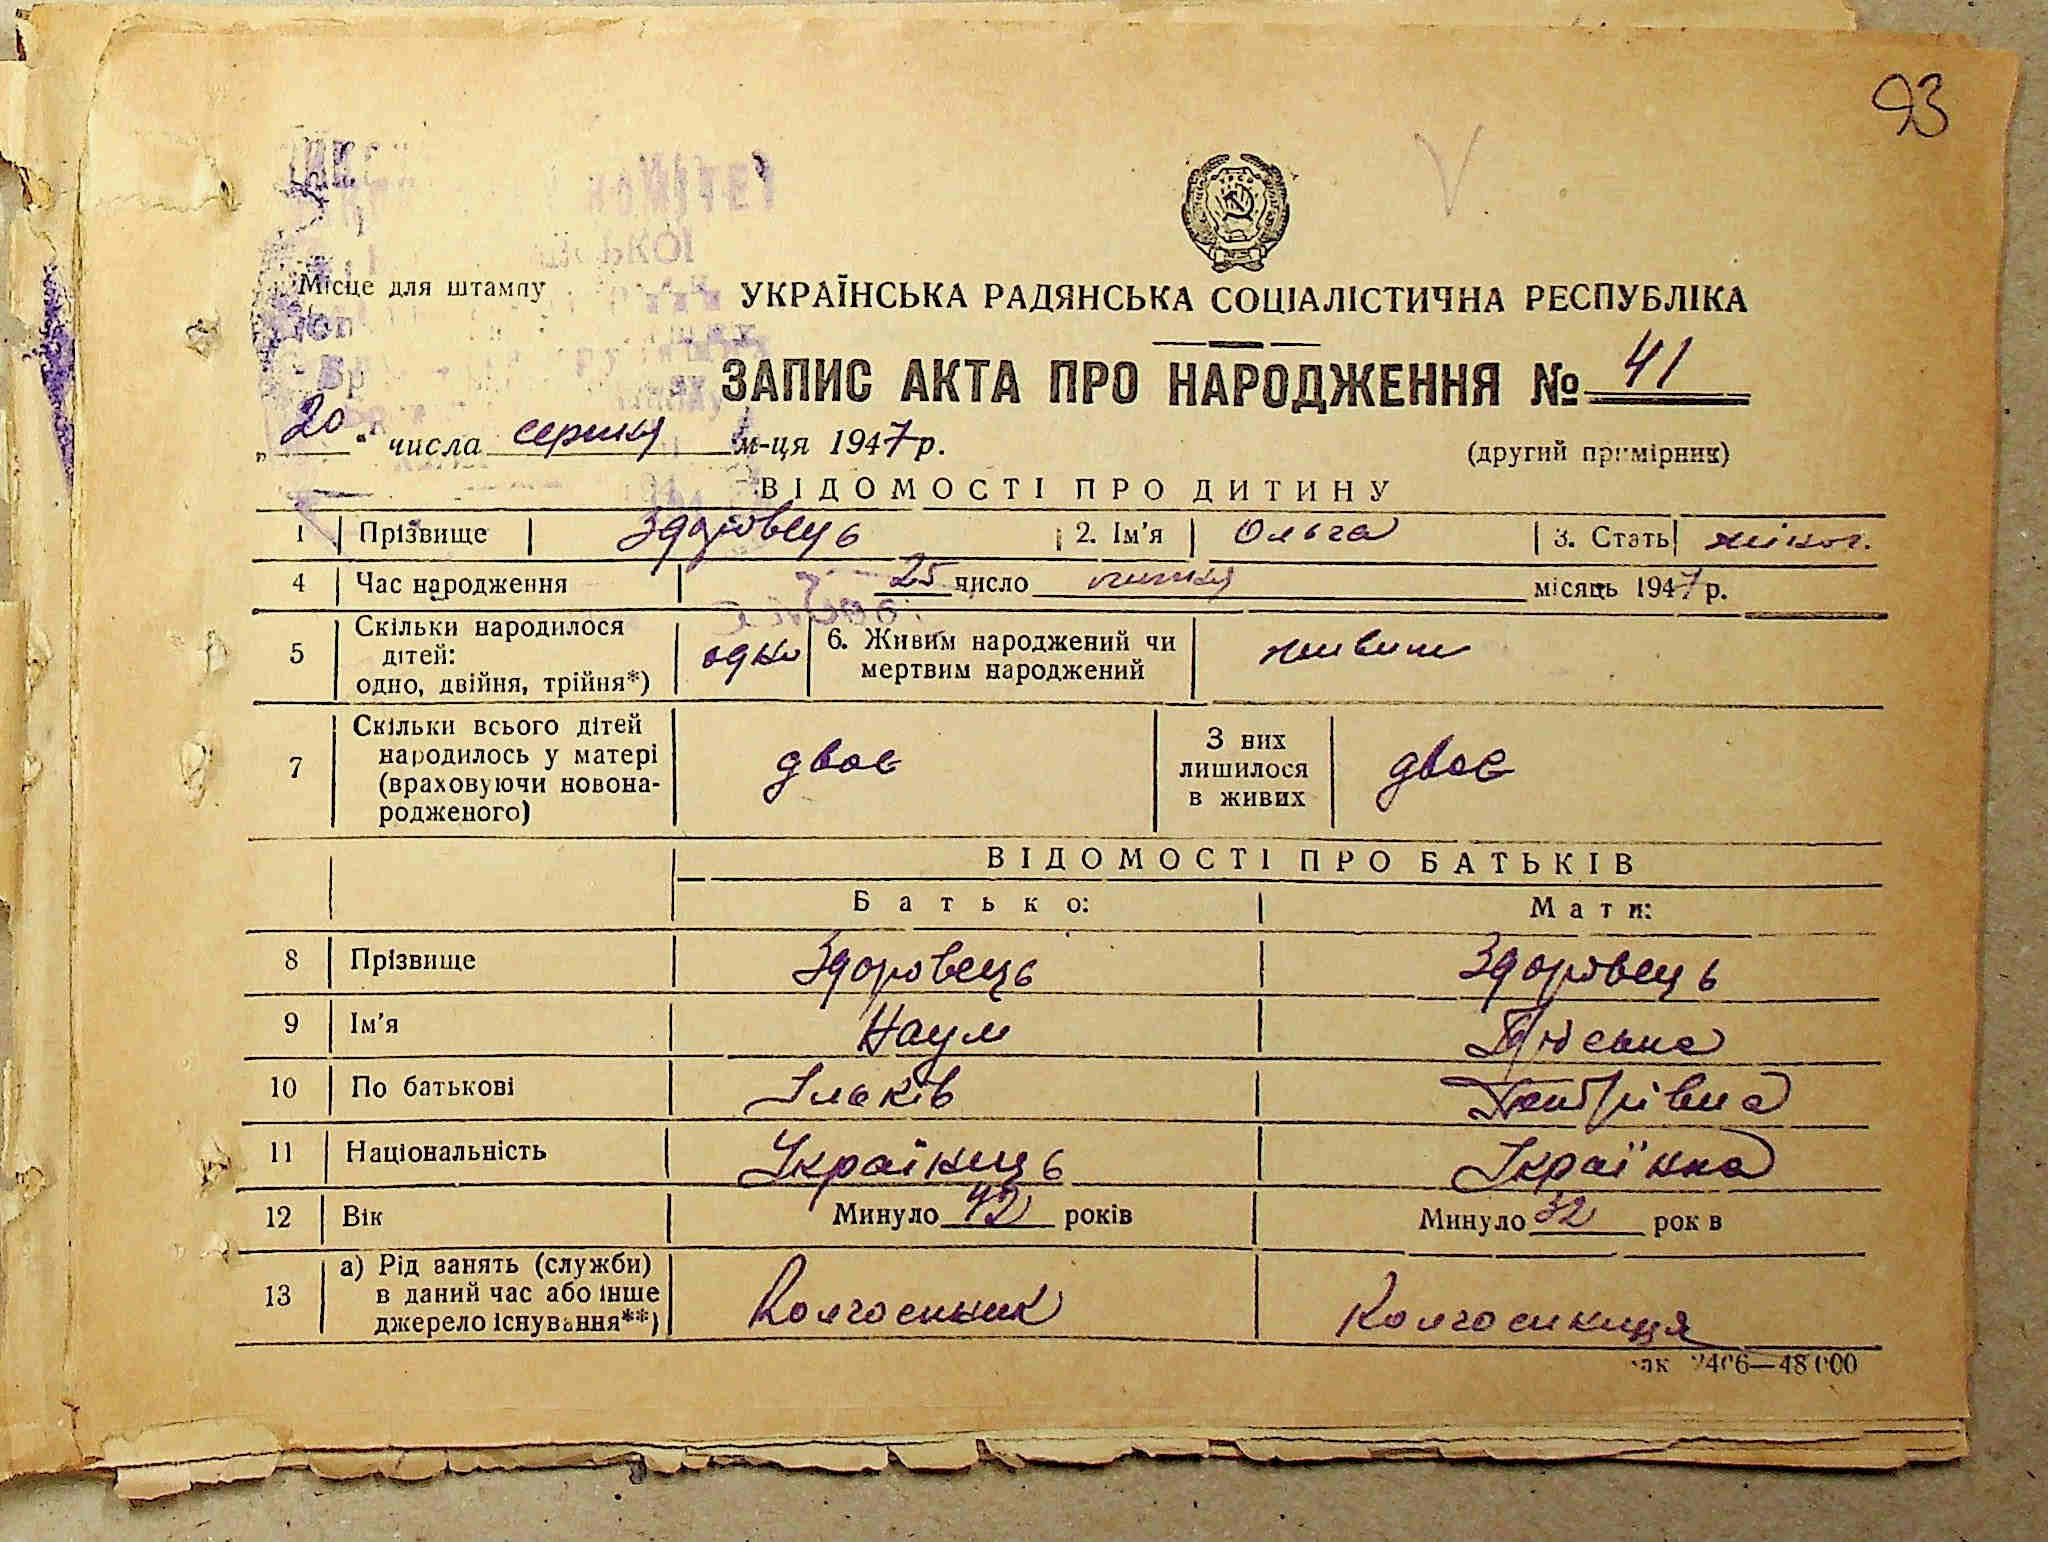 93
КОМІТЕТ
Місце для штампу
УКРАЇНСЬКА РАДЯНСЬКА СОЦІАЛІСТИЧНА РЕСПУБЛІКА
ЗАПИС АКТА ПРО НАРОДЖЕННЯ № 41
„20“ числа серпня м-ця 1947 р.
(другий примірник)
ВІДОМОСТІ ПРО ДИТИНУ
1 Прізвище Здоровець 2. Ім'я Ольга 3. Стать жіноч.
4 Час народження 25 число липня місяць 1947 р.
5 Скільки народилося дітей: одно, двійня, трійня*) одно 6. Живим народжений чи мертвим народжений живим
7 Скільки всього дітей народилось у матері (враховуючи новонародженого) двоє З них лишилося в живих двоє
ВІДОМОСТІ ПРО БАТЬКІВ
Батько: Мати:
8 Прізвище Здоровець Здоровець
9 Ім'я Наум
10 По батькові
11 Національність Українець Українка
12 Вік Минуло 42 років Минуло 32 рок в
13 а) Рід занять (служби) в даний час або інше джерело існування**) Колгоспник Колгоспниця
2406—48000